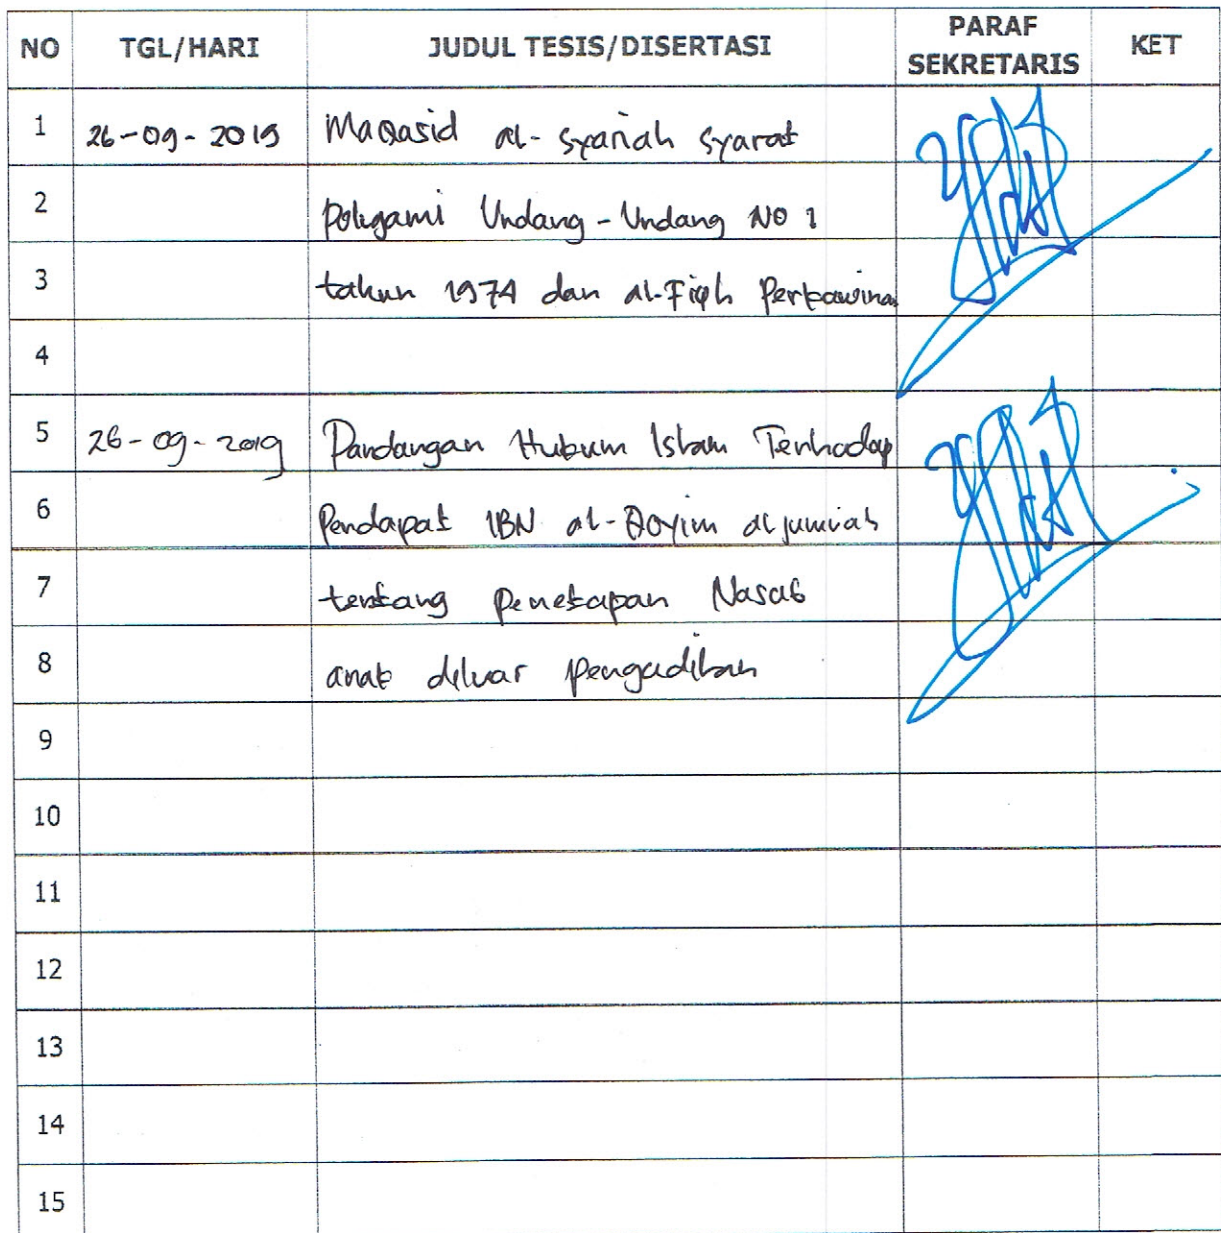 NO TGL/HARI JUDUL TESIS/DISERTASI PARAF SEKRETARIS KET
1 26-09-2019 Maqasid al-syariah syarat
2 Poligami Undang-Undang NO 1
3 tahun 1974 dan al-Fiqh Perkawinan
4
5 26-09-2019 Pandangan Hukum Islam Terhadap
6 Pendapat IBN al-Qoyim aljumiah
7 tentang Penetapan Nasab
8 anak diluar pengadilan
9
10
11
12
13
14
15